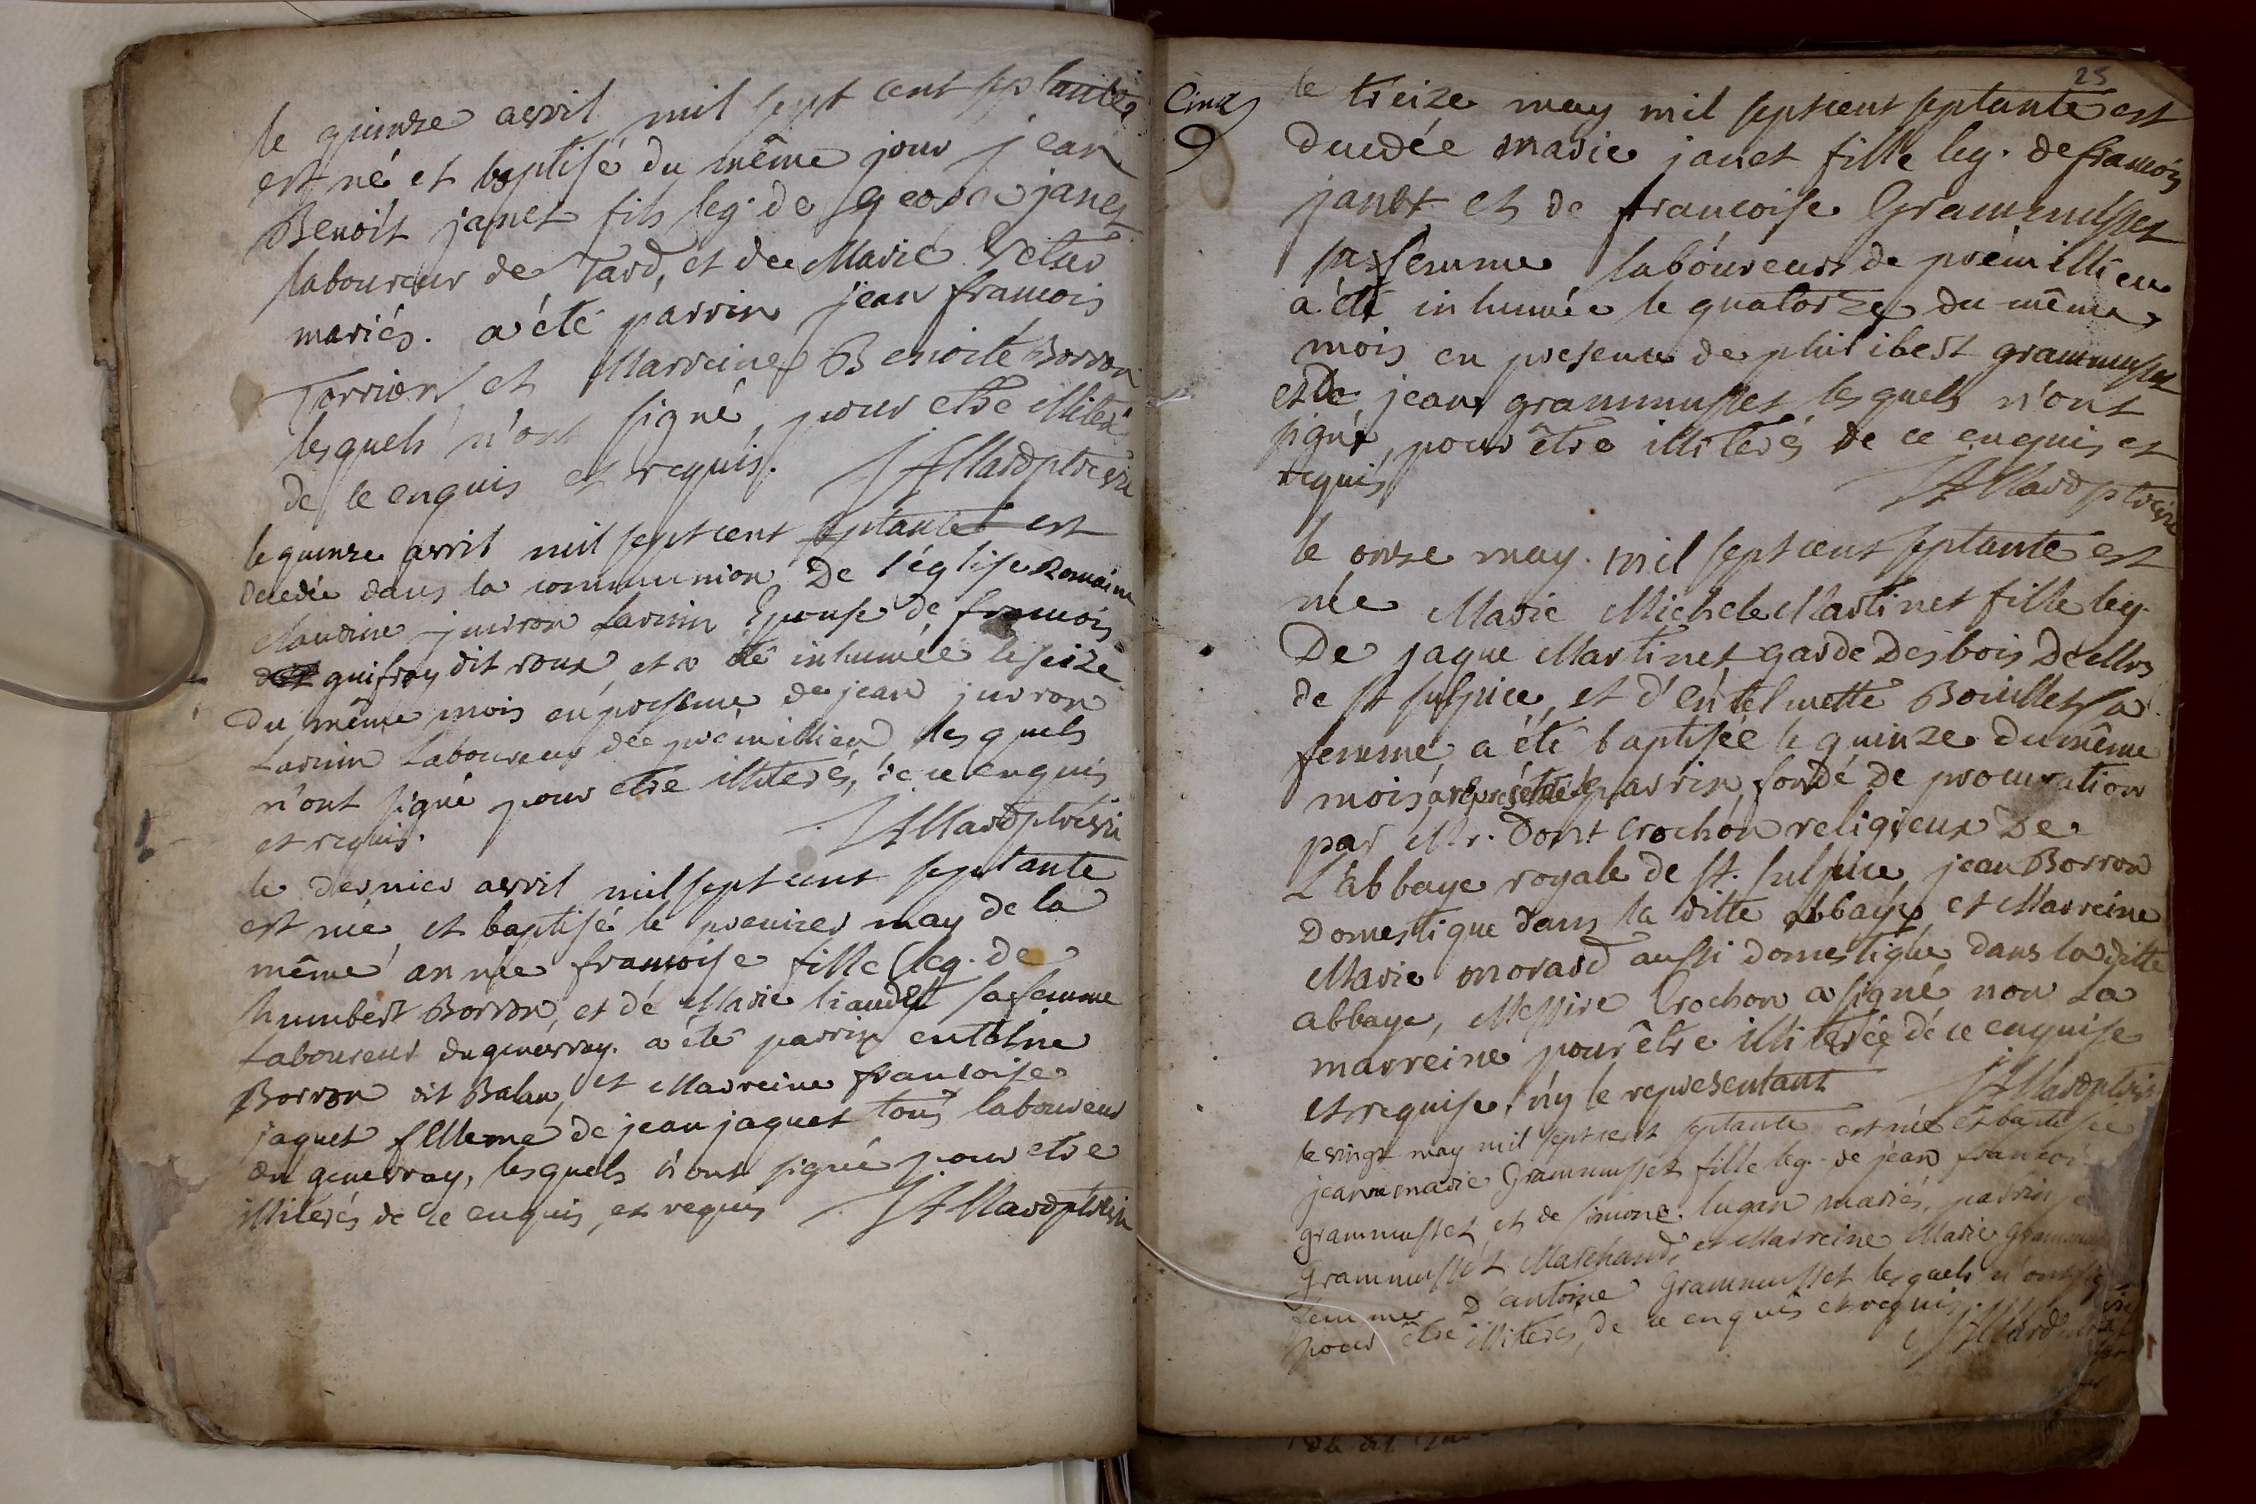 le quinze avril mil sept cent septante
est né et baptisé du même jour jean
Benoit janet fils leg. de janet
laboureur de Tard, et de Marie
mariés. a été parrin jean francois
Torrion et Marreine Benoite Borron
lesquels n'ont signé, pour etre illiterés
de ce enquis et requis. J Allard ptre vic
le quinze avril mil sept cent septante est
decedée dans la communion De l'église Romaine
Claudine juvron Lavinin Epouse de francois
guifray dit roux, et a été inhumée le seize
du même mois en presence de jean juvron
Lavinin Laboureur de premillieu lesquels
n'ont signé pour etre illiterés, de ce enquis
et requis. J Allard ptre vic
le dernier avril mil sept cent septante
est née et baptisé le premier may de la
même année francoise fille leg. de
humbert Borron, et de Marie liaudet sa femme
Laboureur du genevray. a été parrin entelme
Borron dit Balan, et Marreine francoise
jaquet femme de jean jaquet tous laboureur
du genevray, lesquels n'ont signé pour etre
illiterés de ce enquis, et requis J Allard ptre vic
25
Cinq
le treize may mil sept cent septante est
decedée marie janet fille leg. de francois
janet et de francoise Grammusset
sa femme laboureurs de premillieu
a été inhumée le quatorze du même
mois en presence de philibert grammusset
et de jean grammusset lesquels n'ont
signé, pour être illiterés de ce enquis et
requis J Allard ptre vic
le onze may. mil sept cent septante est
née Marie Michele Martinet fille leg.
De jaque Martinet garde Des bois De Mrs
de st sulpice, et d'entelmette Bouillet sa
femme, a été baptisée le quinze du même
mois a representé le parrin, fondé de procuration
par Mr. Dont Crochon religieux De
L'abbaye royale de st. sulpice, jean Borron
Domestique dans la ditte abbaye, et Marreine
Marie morard aussi domestique dans la ditte
abbaye, Messire Crochon a signé non La
marreine pour être illiterée de ce enquise
et requise, n'y le representant J Allard ptre vic
le vingt may mil sept cent septante est née et baptisée
jeanne marie Grammusset fille leg. de jean francois
grammusset, et de simone lugan mariés, parrin
Grammusset Marchand, et Marreine Marie
femme D'antoine Grammusset lesquels n'ont signé
pour être illiterés, de ce enquis et requis. J Allard